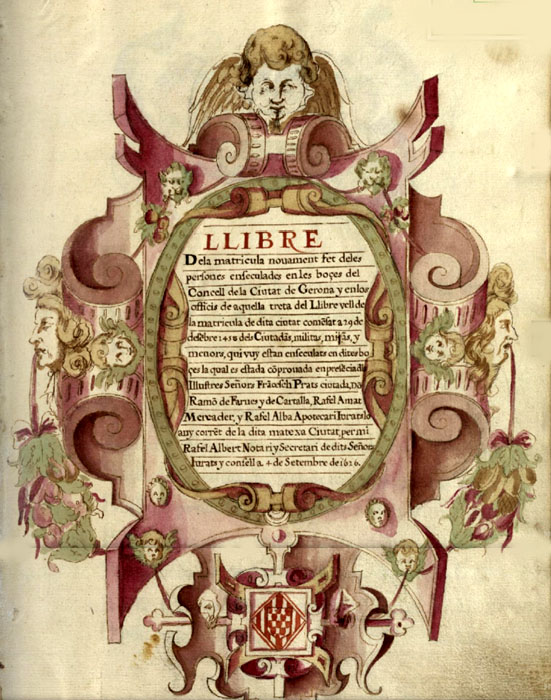 LLIBRE
Dela matricula nouament fet deles
persones enseculades en les boçes del
Concell de la Ciutat de Gerona y en los
officis de aquella treta del Llibre vell de
la matricula de dita ciutat comẽsat a 29 de
desẽbre 1458 dels Ciutadãs, militas, misjãs, y
menors, qui vuy estan ensecula͞ts en dites bo
çes la qual es estada cõprouada en presẽcia dls
Illustres Señors Frãcesch Prats ciutadã, Dõ
Ramõ de Farnes y de Cartalla, Rafel Amat
Mercader, y Rafel Alba Apotecari Iurats lo
any corrẽt de la dita matexa Ciutat, per mi
Rafel Albert Notari y Secretari de dits Señors
Iurats y consell a 4 de Setembre de 1626.